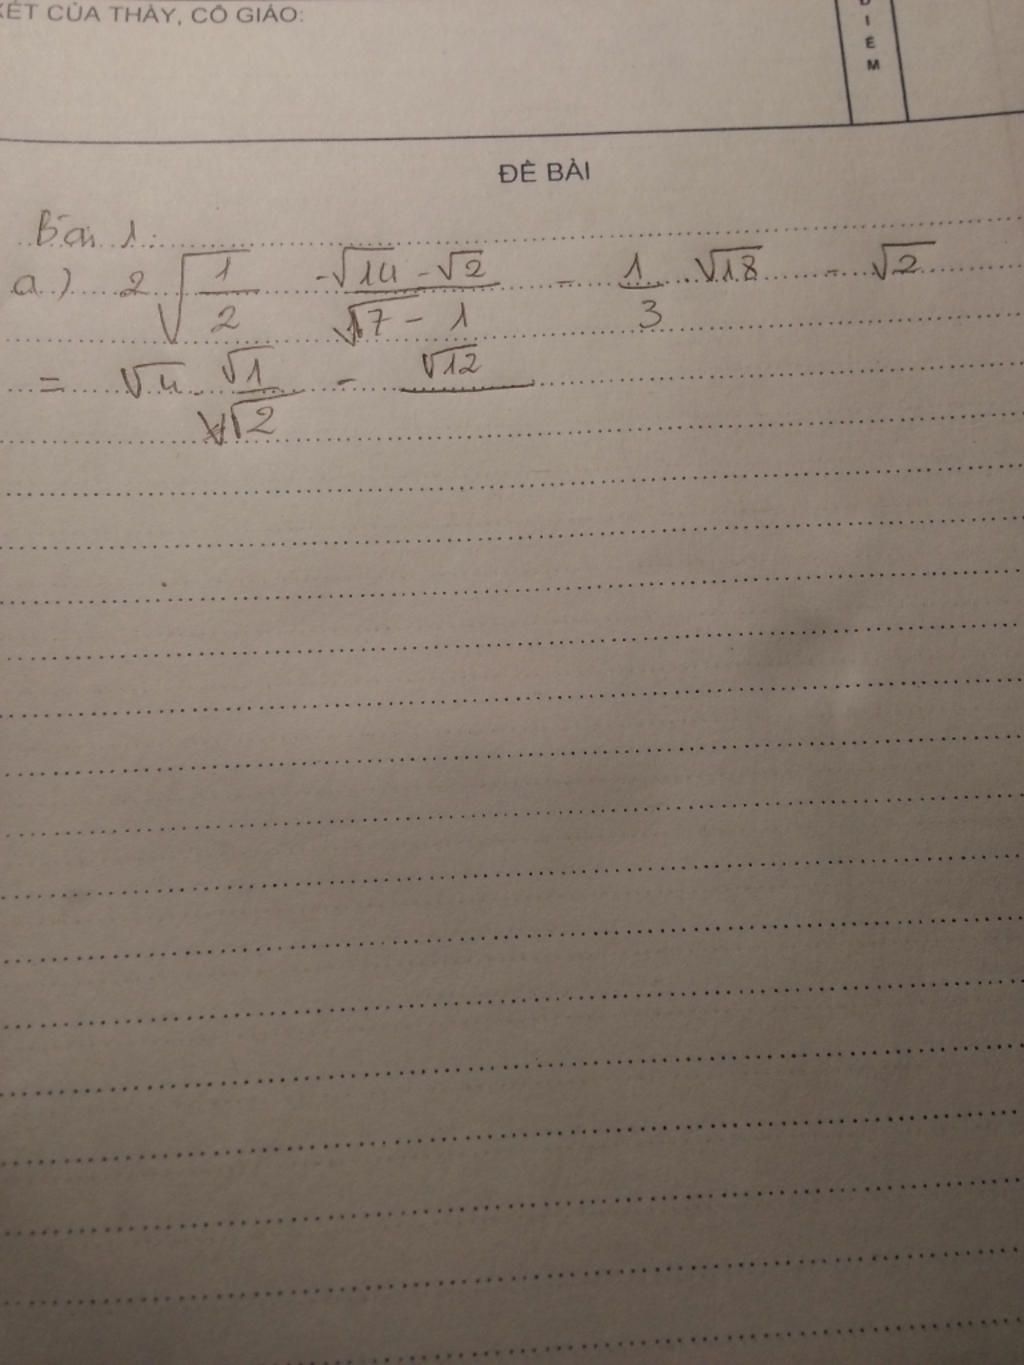 KẾT CỦA THẦY, CÔ GIÁO:
ĐIỂM
ĐỀ BÀI
Bài 1:
a) 2√(1/2) - (√14 - √2)/(√7 - 1) - 1/3 . √18 - √2
= √4 . √1/√2 - √12/